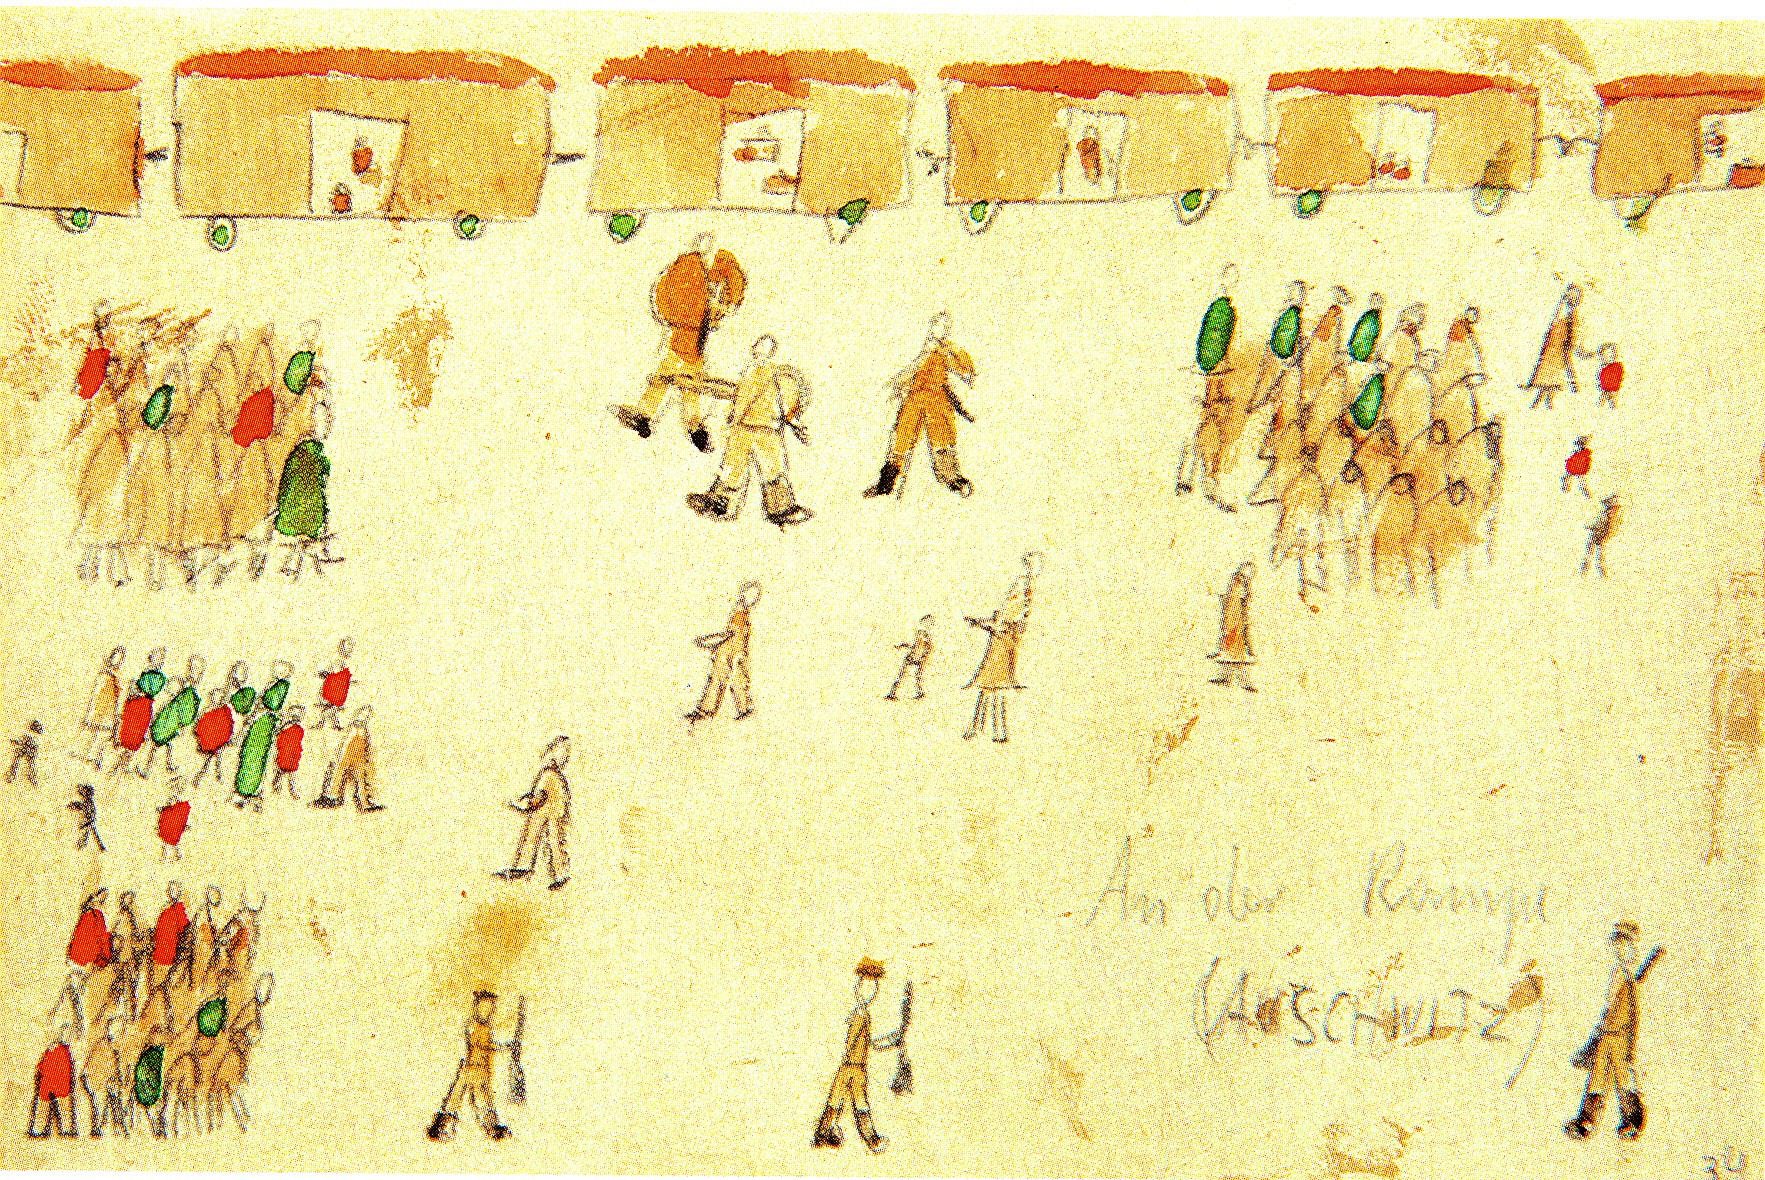 An der Rampe
(AUSCHWITZ)
34